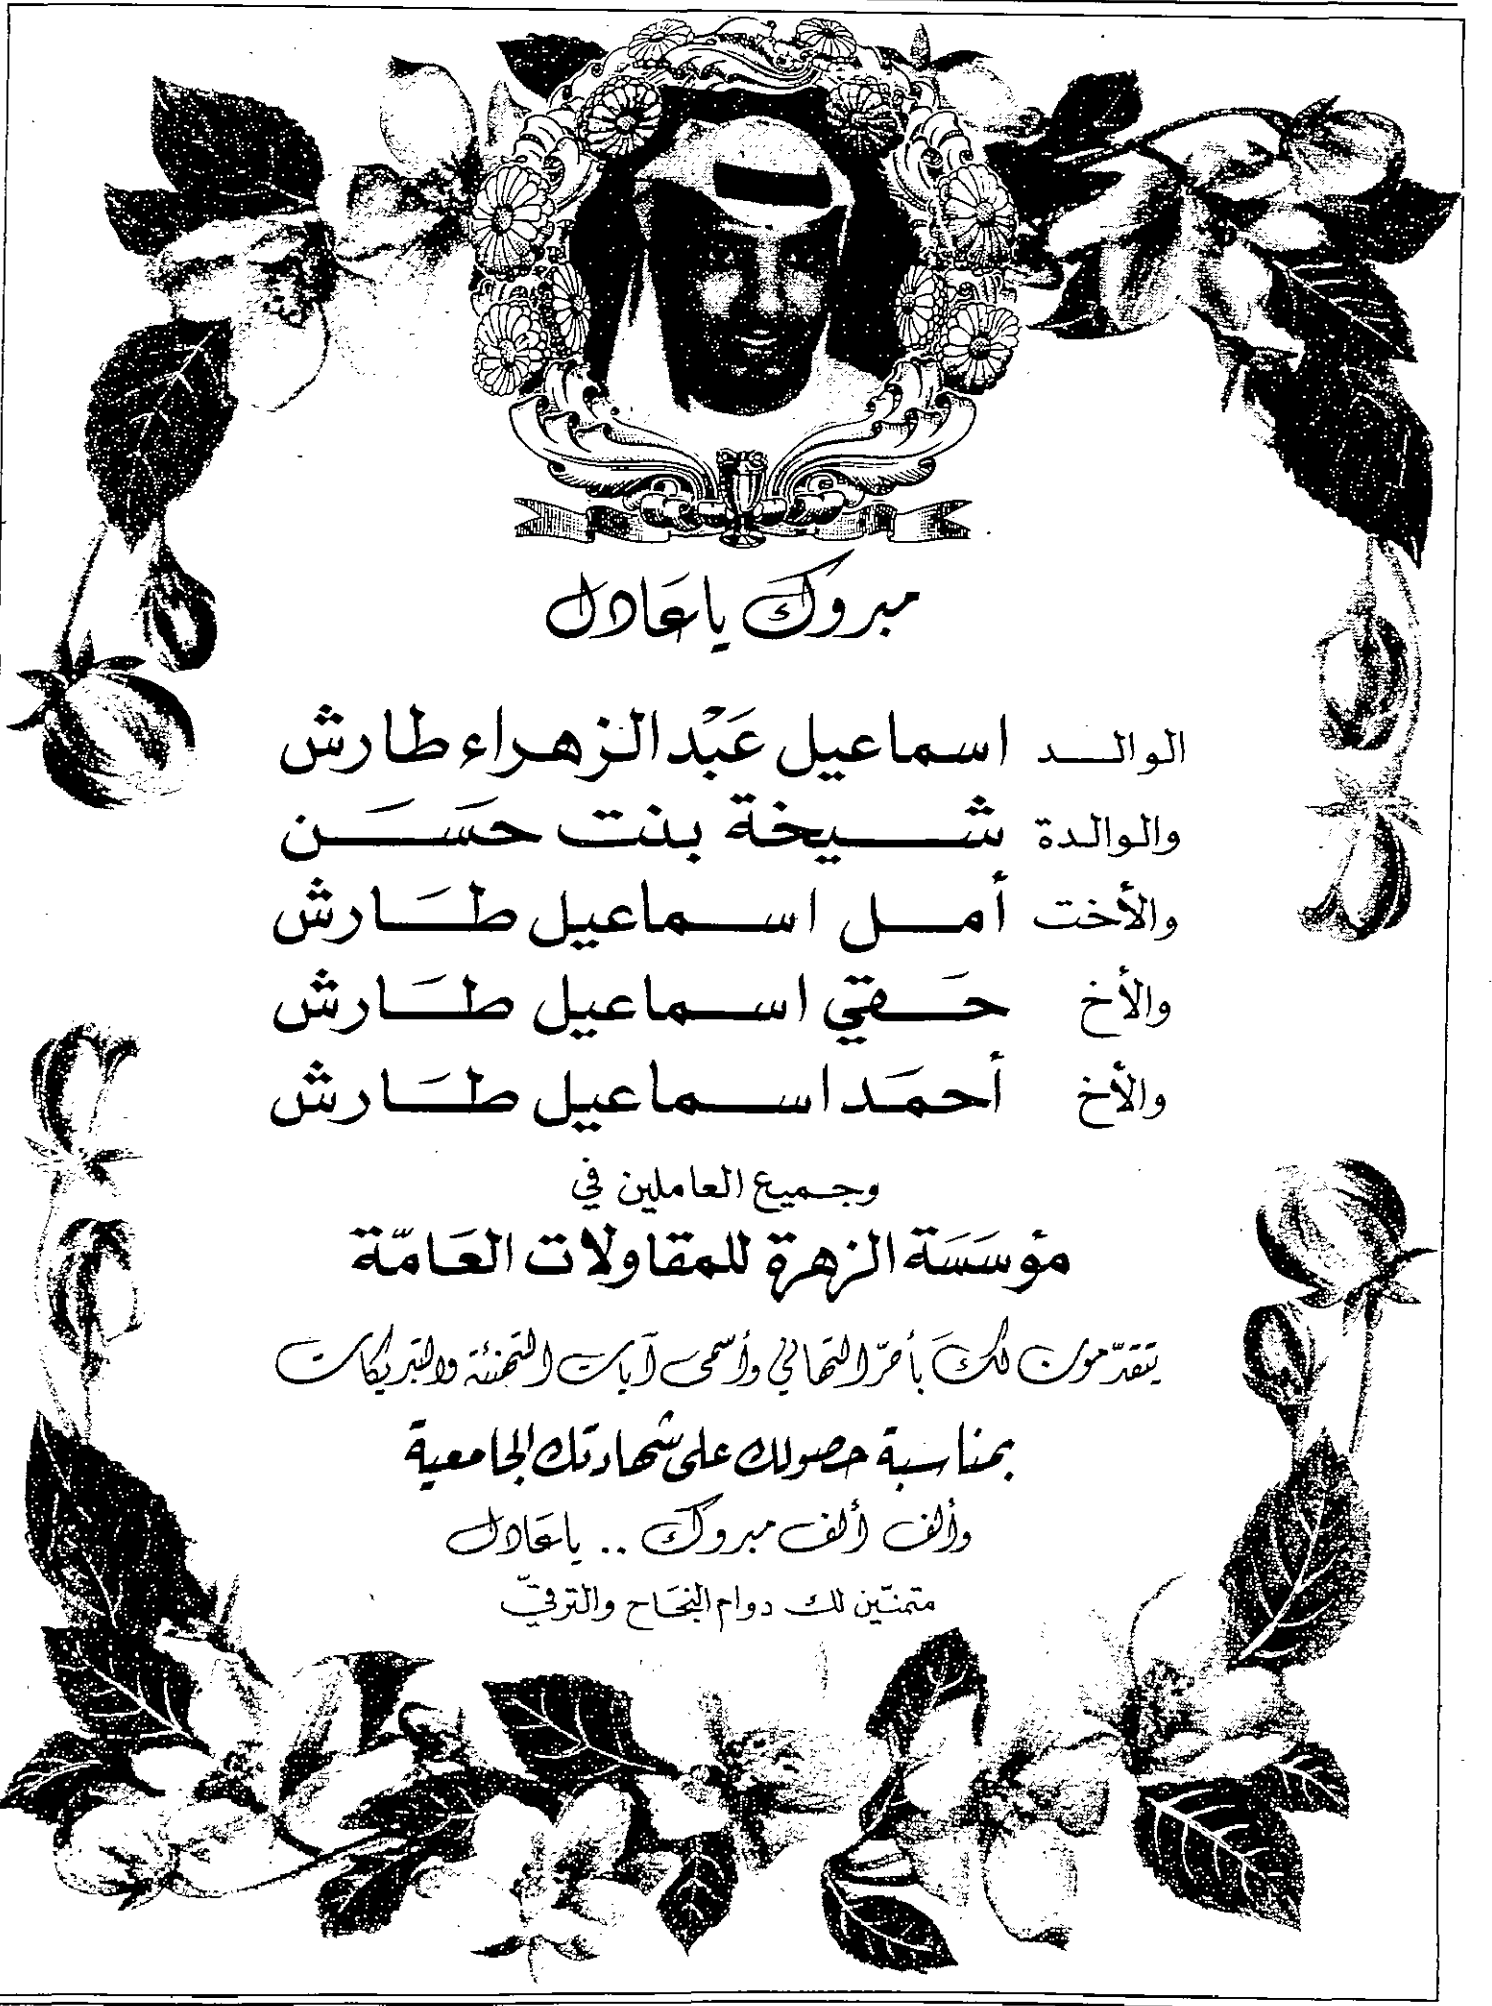 مبروك يا عادل
الوالد اسماعيل عَبْد الزهراء طارش
والوالدة شيخة بنت حَسَن
والأخت أمل اسماعيل طَارش
والأخ حَقي اسماعيل طَارش
والأخ أحمَد اسماعيل طَارش
وجميع العاملين في
مؤسَسَة الزهرة للمقاولات العَامّة
يتقدّمون لكَ بأحرّ التهاني وأسمى آيات التهنئة والتبريكات
بمناسبة حصولك على شهادتك الجامعية
وألف ألف مبروك .. يا عَادل
متمنّين لك دوام النجَاح والترقيّ